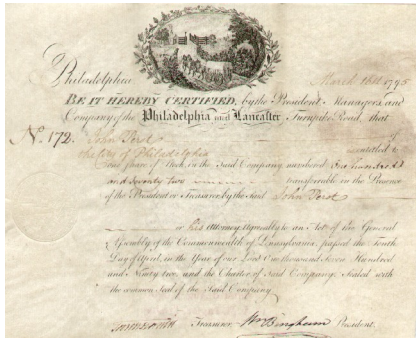 Philadelphia March 16th 1795
BE IT HEREBY CERTIFIED, by the President Managers and
Company of the Philadelphia and Lancaster Turnpike Road, that
No. 172. John Perot
the City of Philadelphia is entitled to
One share of Stock in the Said Company numbered One hundred
and Seventy two transferrable in the Presence
of the President or Treasurer by the Said John Perot
or his Attorney Agreeably to an Act of the General
Assembly of the Commonwealth of Pennsylvania, passed the Ninth
Day of April, in the Year of our Lord One thousand Seven Hundred
and Ninety two, and the Charter of Said Company. Sealed with
the common Seal of the Said Company
Treasurer Wm Bingham President.